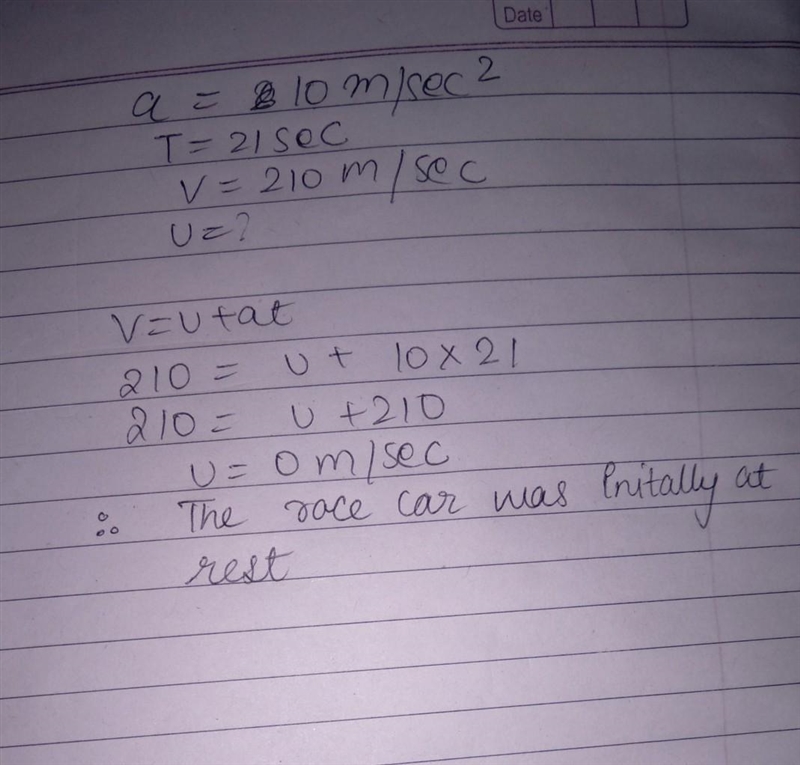 Date
a = 10 m/sec²
T = 21 sec
V = 210 m/sec
U = ?
V = U + at
210 = U + 10 × 21
210 = U + 210
U = 0 m/sec
∴ The race car was Initally at
rest